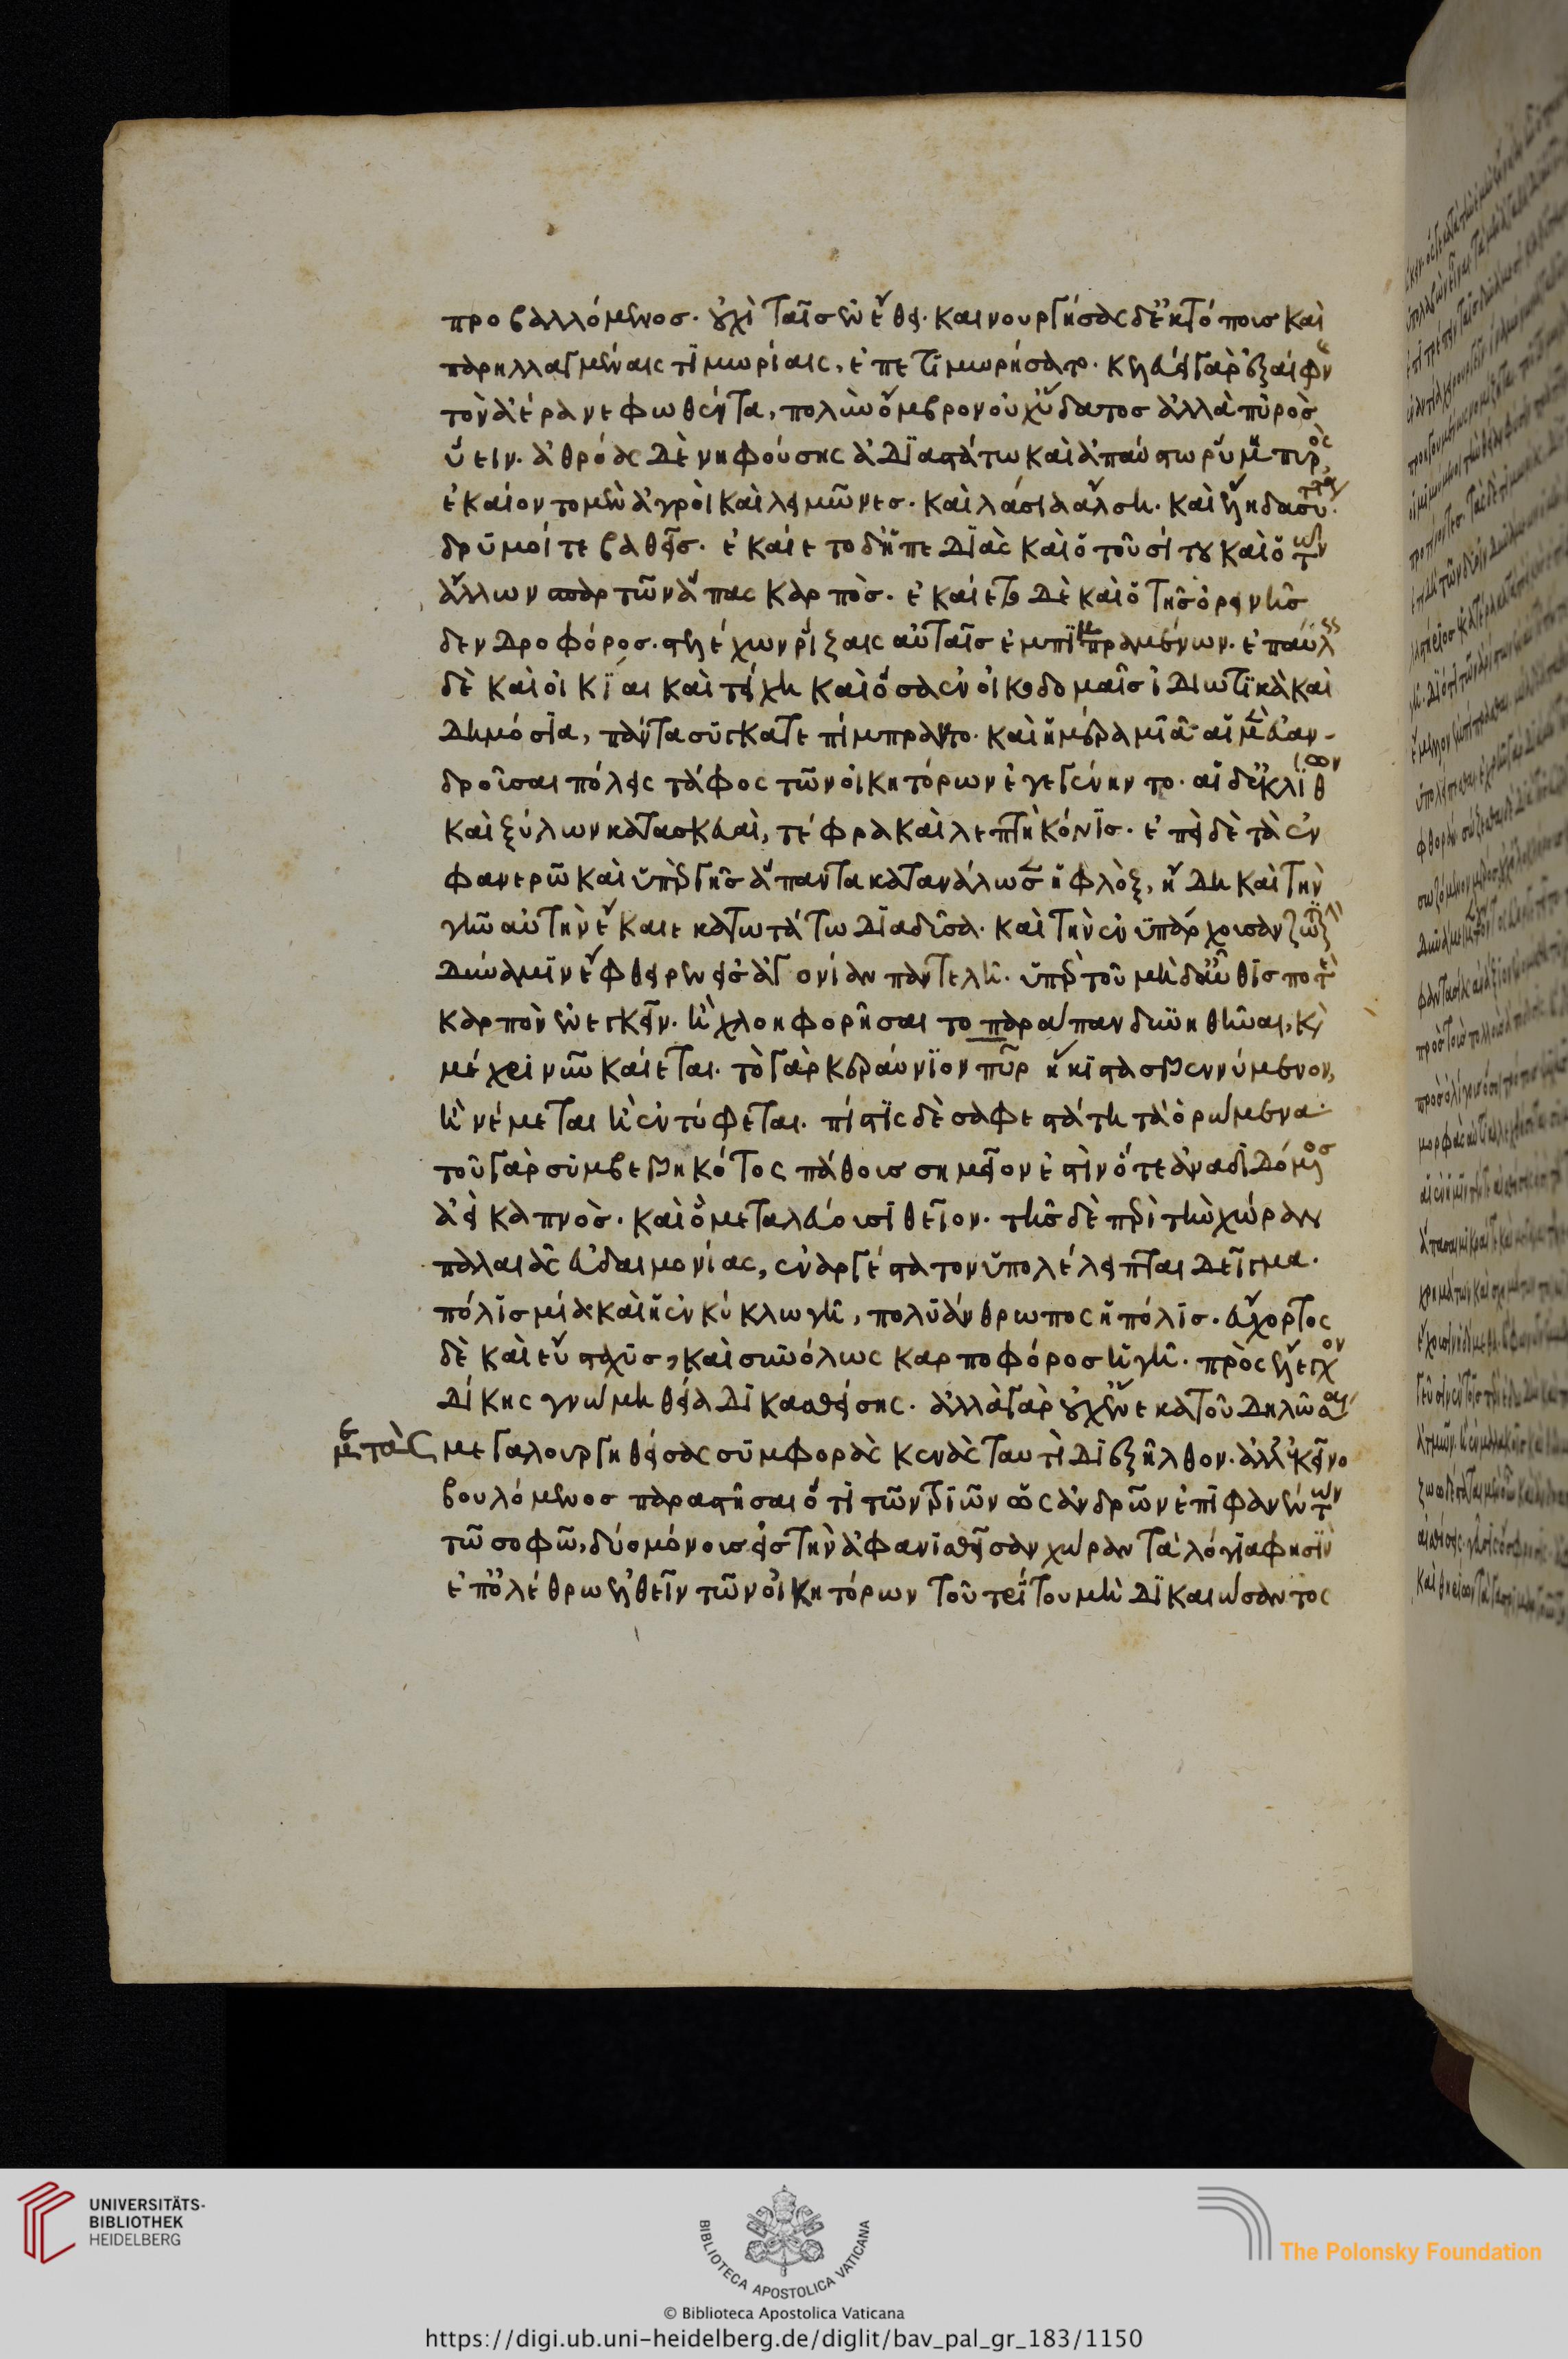 προβαλλόμενος· οὐχὶ ταῖς ἐν ἔθει· καινουργήσας δὲ ἐκτόποις καὶ
παρηλλαγμέναις τιμωρίαις, ἐπετιμωρήσατο· κελεύει γὰρ ἐξαίφνης
τὸν ἀέρα νεφωθέντα, πολὺν ὄμβρον οὐχ ὕδατος ἀλλὰ πυρὸς
ὕειν· ἀθρόας δὲ νηφούσης ἀδιαστάτω καὶ ἀπαύστω ῥύμη πυρός,
ἐκαίοντο μὲν ἀγροὶ καὶ λειμῶνες· καὶ λάσια ἄλση· καὶ ἕλη δασύτατα·
δρυμοί τε βαθεῖς· ἐκαίετο δ' ἡ πεδιὰς καὶ ὁ τοῦ σίτου καὶ ὁ τῶν
ἄλλων σπαρτῶν ἅπας καρπὸς· ἐκαίετο δὲ καὶ ὁ τῆς ὀρεινῆς
δενδροφόρος· στελέχων ῥίζαις αὐταῖς ἐμπιπραμένων· ἐπαύλεις
δὲ καὶ οἰκίαι καὶ τείχη καὶ ὅσα ἐν οἰκοδομαῖς ἰδιωτικὰ καὶ
δημόσια, πάντα συγκατεπίμπραντο· καὶ ἡμέρα μιᾶ αἱ μὲν εὐαν-
δροῦσαι πόλεις τάφος τῶν οἰκητόρων ἐγεγένηντο· αἱ δ' ἐκ λίθων
καὶ ξύλων κατασκευαὶ, τέφρα καὶ λεπτὴ κόνις· ἐπεὶ δὲ τὰ ἐν
φανερῶ καὶ ὑπὲρ γῆς ἅπαντα κατανάλωσεν ἡ φλὸξ, ἤδη καὶ τὴν
γῆν αὐτὴν ἔκαιε κατωτάτω διαδῦσα· καὶ τὴν ἐνυπάρχουσαν ζωτικὴν
δύναμιν ἔφθειρεν εἰς ἀγονίαν παντελῆ· ὑπὲρ τοῦ μὴ δ' αὖθις ποτὲ
καρπὸν ἐνεγκεῖν· ἢ χλοηφορῆσαι το παράπαν δυνηθῆναι, καὶ
μέχρι νῦν καίεται· τὸ γὰρ κεραύνιον πῦρ ἥκιστα σβεννύμενον,
ἢ νέμεται ἢ ἐντύφεται· πίστις δὲ σαφεστάτη τὰ ὁρώμενα
τοῦ γὰρ συμβεβηκότος πάθους σημεῖον ἐστὶν ὅ τε ἀναδιδόμενος
ἀεὶ καπνὸς· καὶ ὃ μεταλεύουσι θεῖον· τῆς δὲ περὶ τὴν χώραν
παλαιᾶς εὐδαιμονίας, ἐναργέστατον ὑπολέλειπται δεῖγμα·
πόλις μία καὶ ἡ ἐν κύκλω γῆ, πολυάνθρωπος ἡ πόλις· εὔχορτος
δὲ καὶ εὔσταχυς, καὶ συνόλως καρποφόρος ἡ γῆ· πρὸς ἔλεγχον
δίκης γνώμη θεία δικασθείσης· ἀλλὰ γὰρ οὐχ ἕνεκα τοῦ δηλῶσαι
μὲν τὰς μεγαλουργηθείσας συμφορὰς κενὰς ταυτὶ διεξῆλθον· ἀλλ' ἐκεῖνο
βουλόμενος παραστῆσαι ὅτι τῶν τριῶν ὡς ἀνδρῶν ἐπιφανέντων
τῶ σοφῶ, δύο μόνους εἰς τὴν ἀφανισθεῖσαν χώραν τὰ λόγια φησὶν
ἐπ' ὀλέθρω ἐλθεῖν τῶν οἰκητόρων τοῦ τρίτου μὴ δικαιώσαντος
UNIVERSITÄTS-
BIBLIOTHEK
HEIDELBERG
BIBLIOTECA APOSTOLICA VATICANA
The Polonsky Foundation
© Biblioteca Apostolica Vaticana
https://digi.ub.uni-heidelberg.de/diglit/bav_pal_gr_183/1150